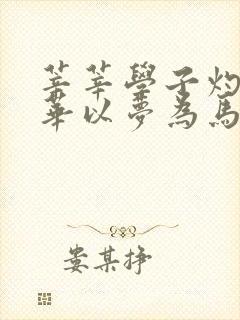 莘莘學子灼
華以夢為馬
娄某挣